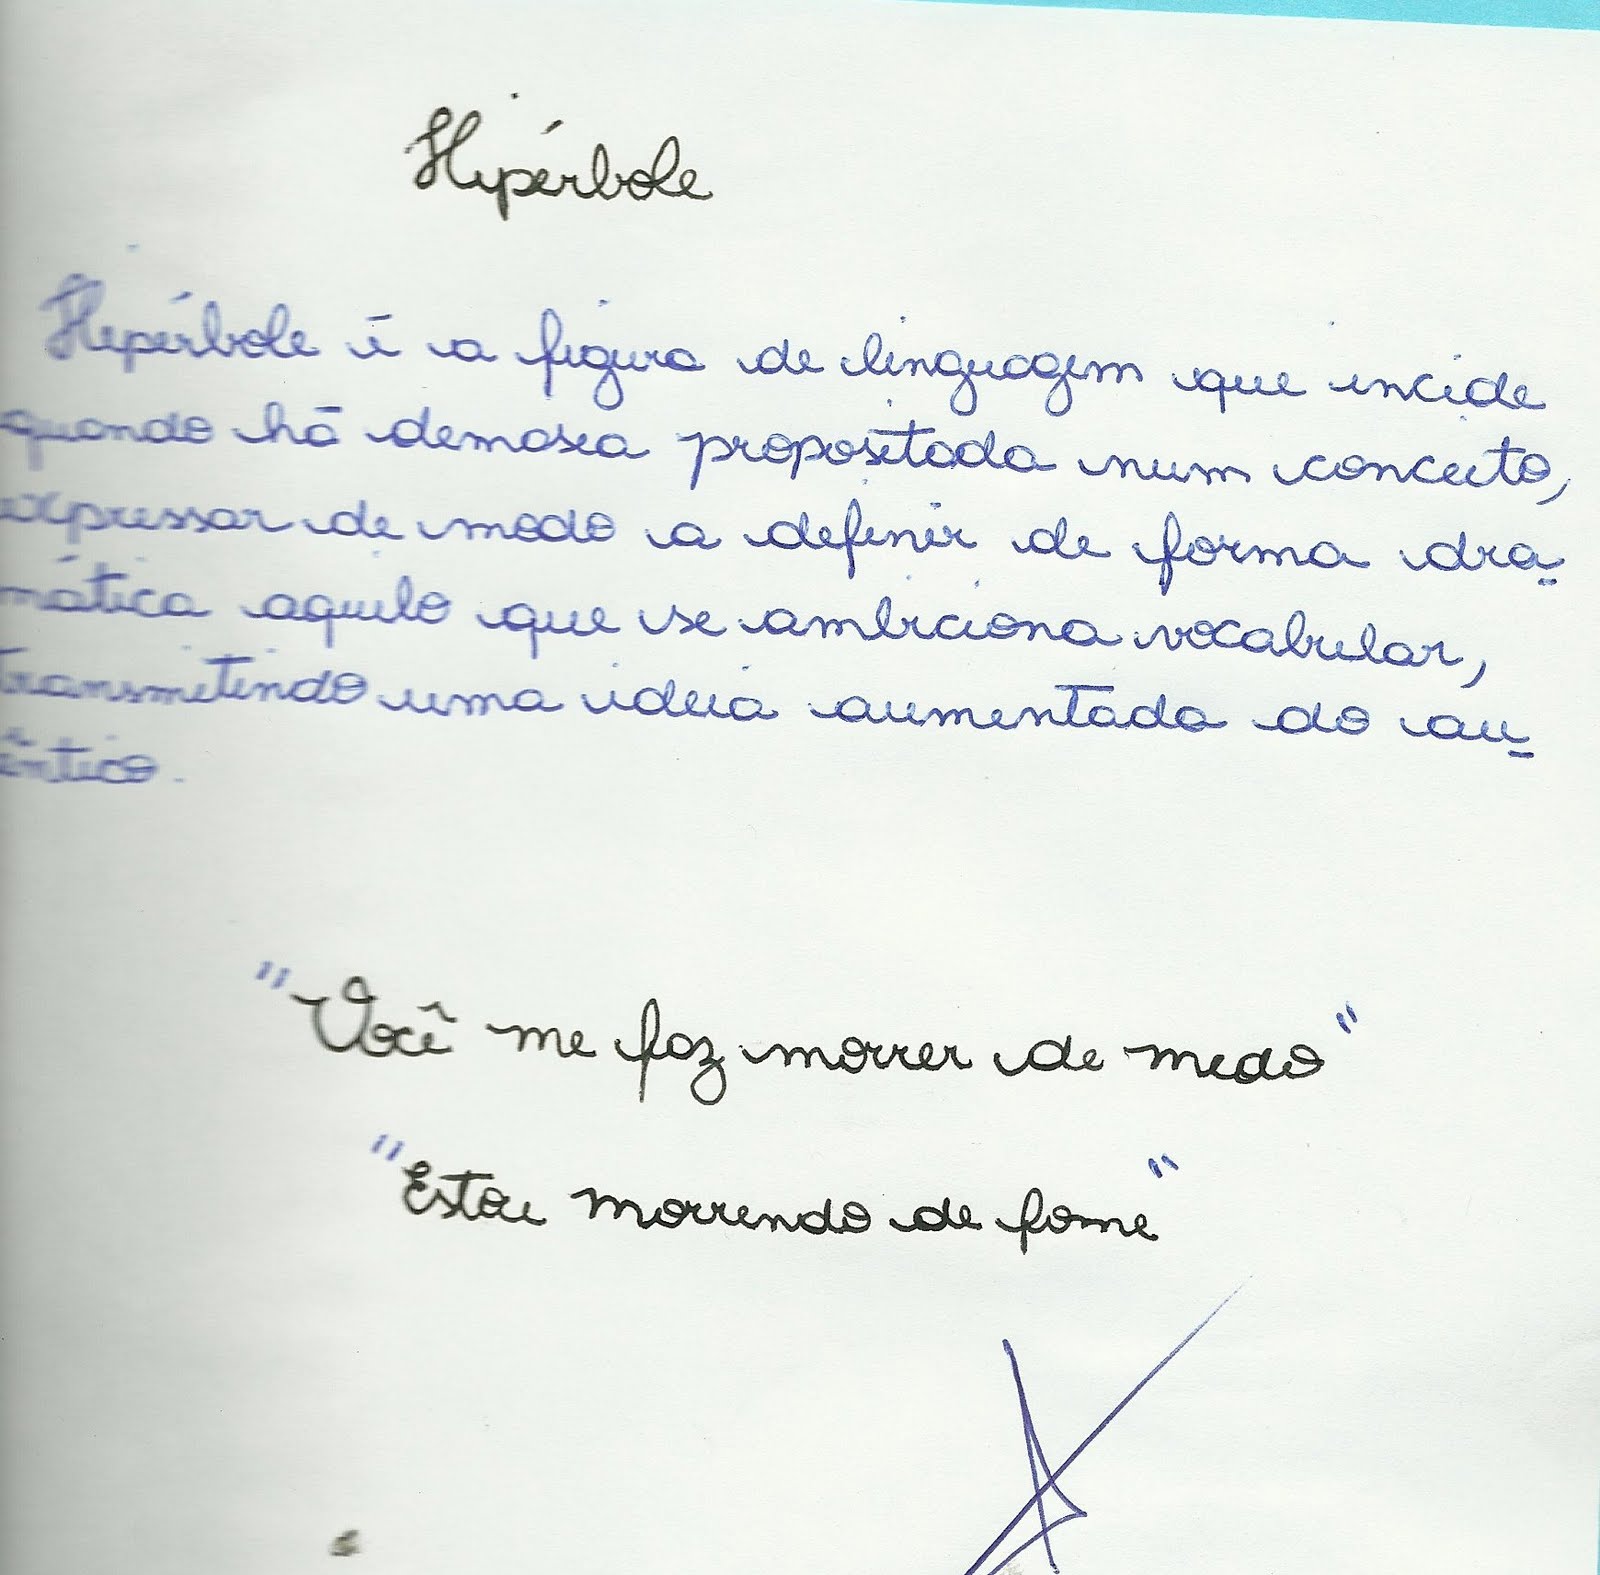 Hipérbole
Hipérbole é a figura de linguagem que incide
quando há demasia propositada num conceito,
expressar de modo a definir de forma dra-
mática aquilo que se ambiciona vocabular,
transmitindo uma ideia aumentada do au-
êntico.
"Você me faz morrer de medo"
"Estou morrendo de fome"